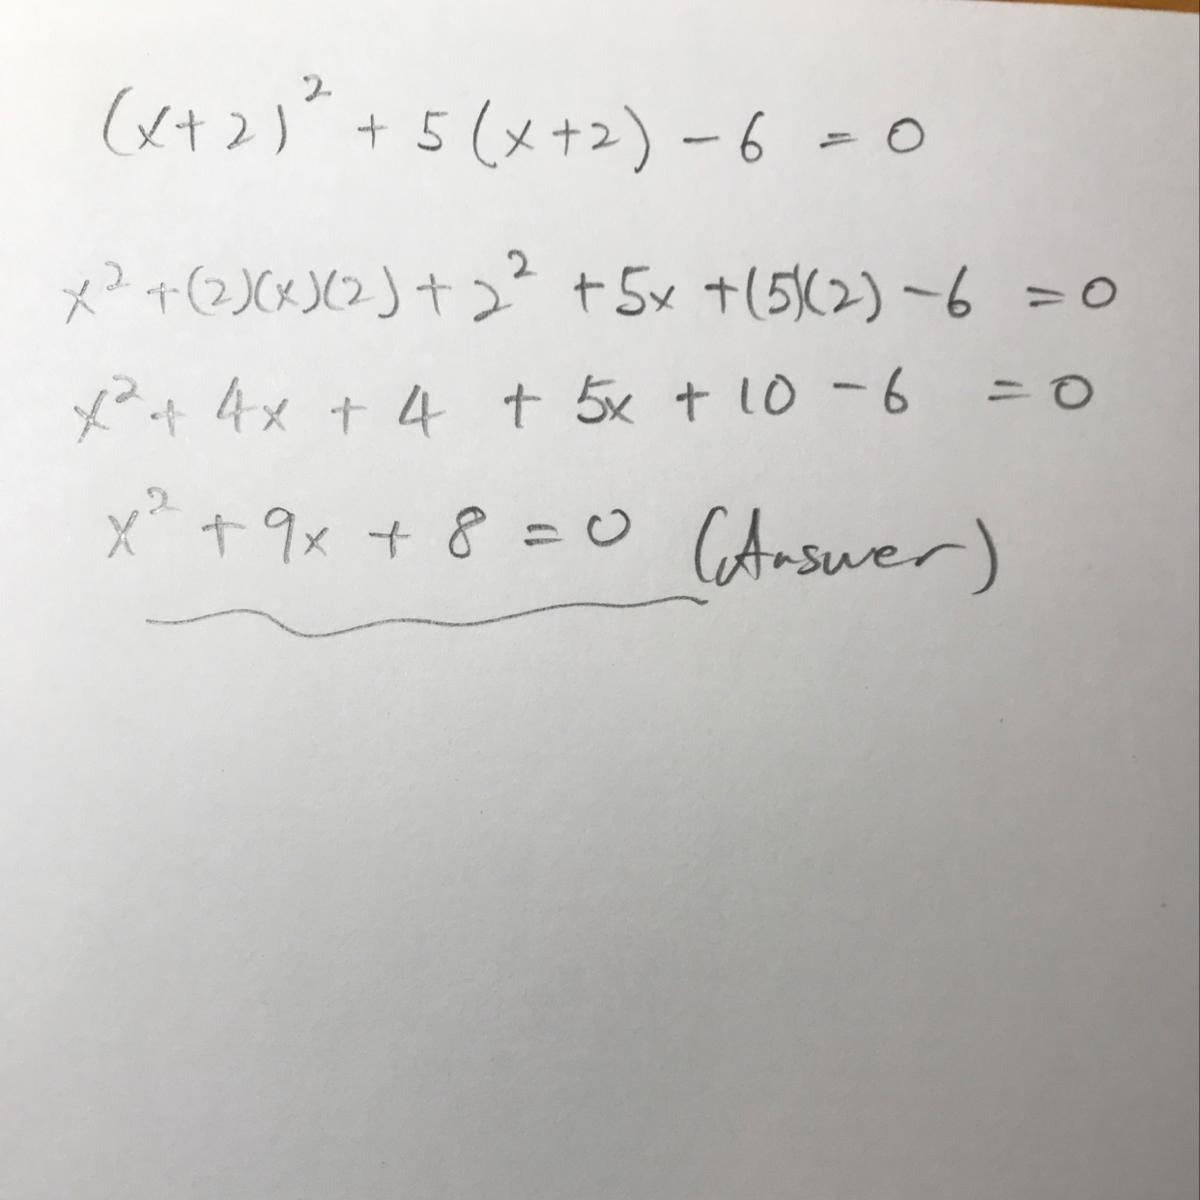 (x+2)² + 5(x+2) - 6 = 0
x² + (2)(x)(2) + 2² + 5x + (5)(2) - 6 = 0
x² + 4x + 4 + 5x + 10 - 6 = 0
x² + 9x + 8 = 0 (Answer)